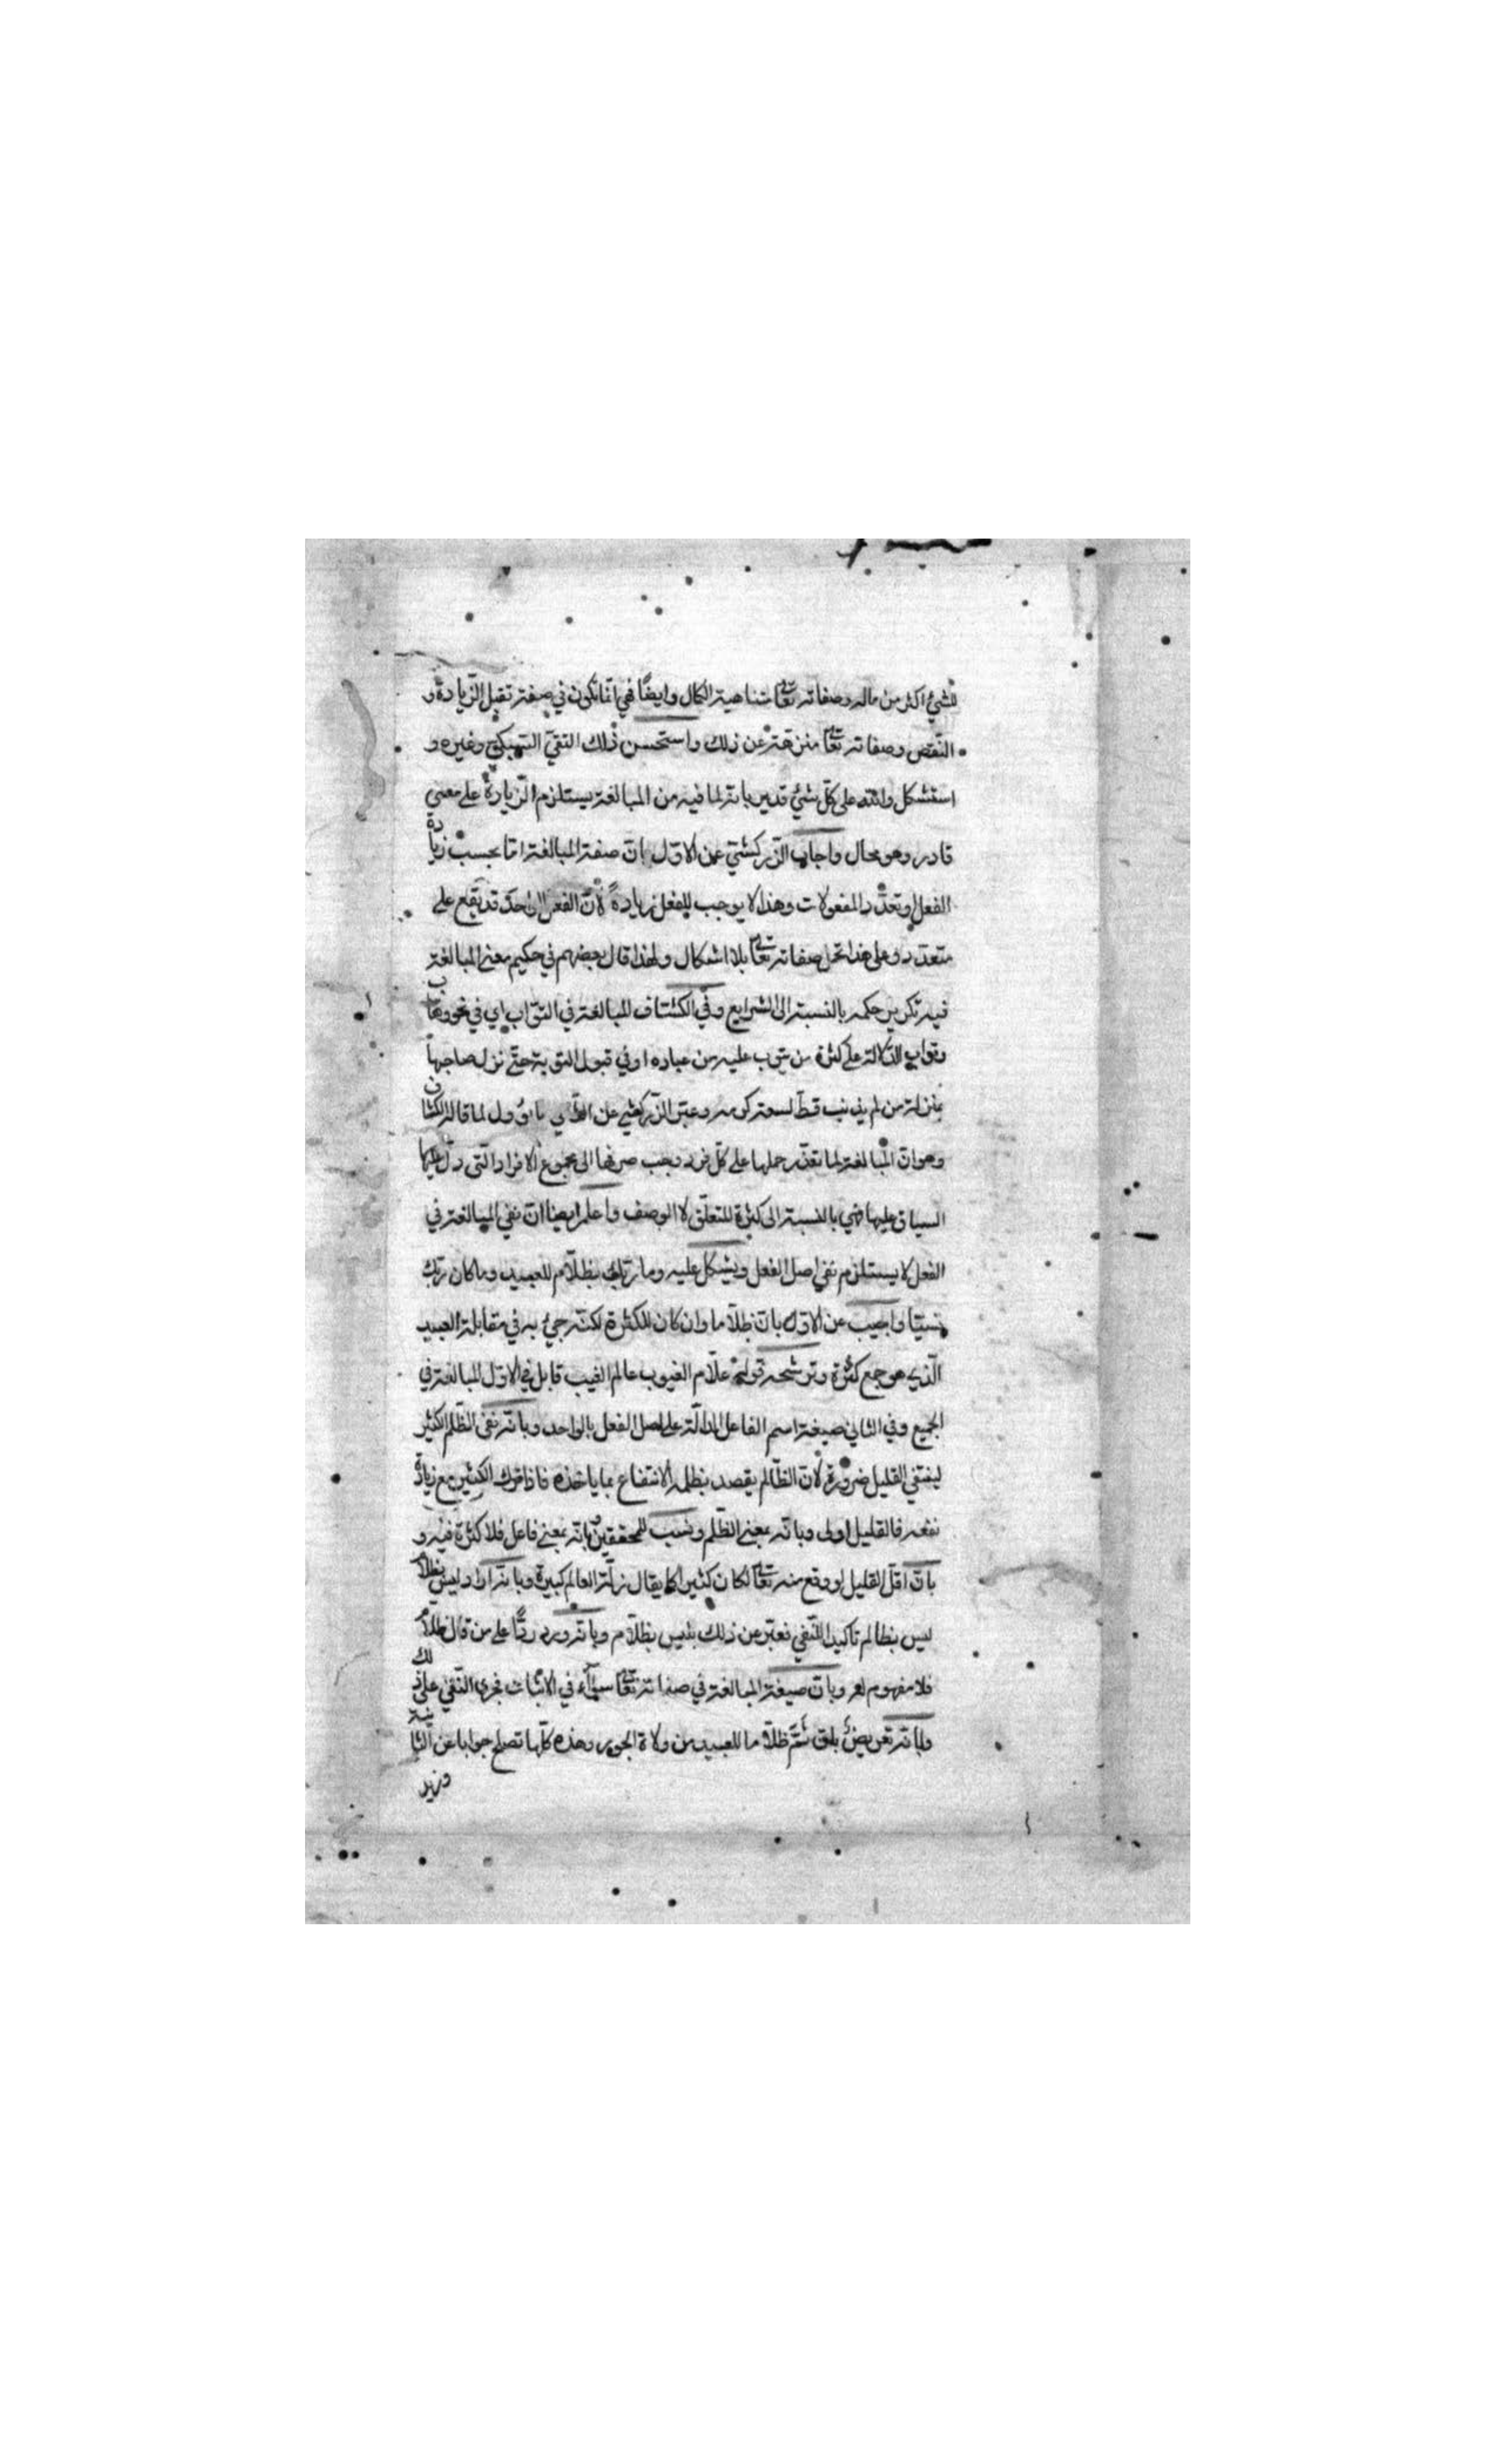 للشيء اكثر من ماله وصفاته تعالى متناهية الكمال وايضًا فهي انما تكون في صفة تقبل الزيادة و
النقص وصفاته تعالى منزهة عن ذلك واستحسن ذلك التقي السبكي وغيره و
استشكل والله على كل شيء قدير بانه لما فيه من المبالغة يستلزم الزيادة على معنى
قادر وهو محال واجاب الزركشي عن الاول بان صفة المبالغة اما بحسب زيادة
الفعل او تعدّد المفعولات وهذا لا يوجب للفعل زيادةً لانّ الفعل الواحد قد يقع على
متعدّد وعلى هذا تحمل صفاته تعالى بلا اشكال ولهذا قال بعضهم في حكيم معنى المبالغة
فيه تكرير حكمه بالنسبة الى الشرايع وفي الكشاف المبالغة في التوّاب اي في نحو وهّاب
وتواب الدلالة على كثرة من يتوب عليه من عباده او في قبول التوبة حتى نزل صاحبها
منزلة من لم يذنب قط لسعة كرمه الزركشي عن يأول لما قاله الكشاف
وهو انّ المبالغة لما تعذّر حملها على كلّ فرد وجب صرفها الى مجموع الافراد التي دلّ عليها
السياق عليها فهي بالنسبة الى كثرة المتعلّق لا الوصف واعلم ايضا انّ نفي المبالغة في
الفعل لا يستلزم نفي اصل الفعل ويشكل عليه وما ربّك بظلّام للعبيد وما كان ربّك
نسيّا واجيب عن الاول بانّ ظلّاما وان كان للكثرة لكنّه جيء به في مقابلة العبيد
الّذي هو جمع كثرة وترشحه قوله علّام الغيوب عالم الغيب قابل في الاوّل المبالغة في
الجميع وفي الثاني صيغة اسم الفاعل الدالّة على اصل الفعل بالواحد وبانّه نفى الظّلم الكثير
لينتفي القليل ضرورة لانّ الظّالم يقصد بظلمه الانتفاع بما ياخذه فاذا ترك الكثير مع زيادة
نفعه فالقليل اولى وبانّه بمعنى الظّلم ونسب للمحققين وبانّه بمعنى فاعل فلا كثرة فيه و
بانّ اقلّ القليل لو وقع منه تعالى لكان كثيرا كما يقال زلّة العالم كبيرة وبانّه اراد ليس بظلّام
ليس بظالم تاكيدا للنّفي فعبّر عن ذلك بليس بظلّام وبانّه ورد ردًّا على من قال ظلّام
فلا مفهوم له وبانّ صيغة المبالغة في صفاته تعالى سواء في الاثبات فجرى النّفي على ذلك
وبانّه تعريض بانّ ثَمَّ ظلّاما للعبيد من ولاة الجور وهذه كلّها تصلح جوابا عن الثانية
وزيد